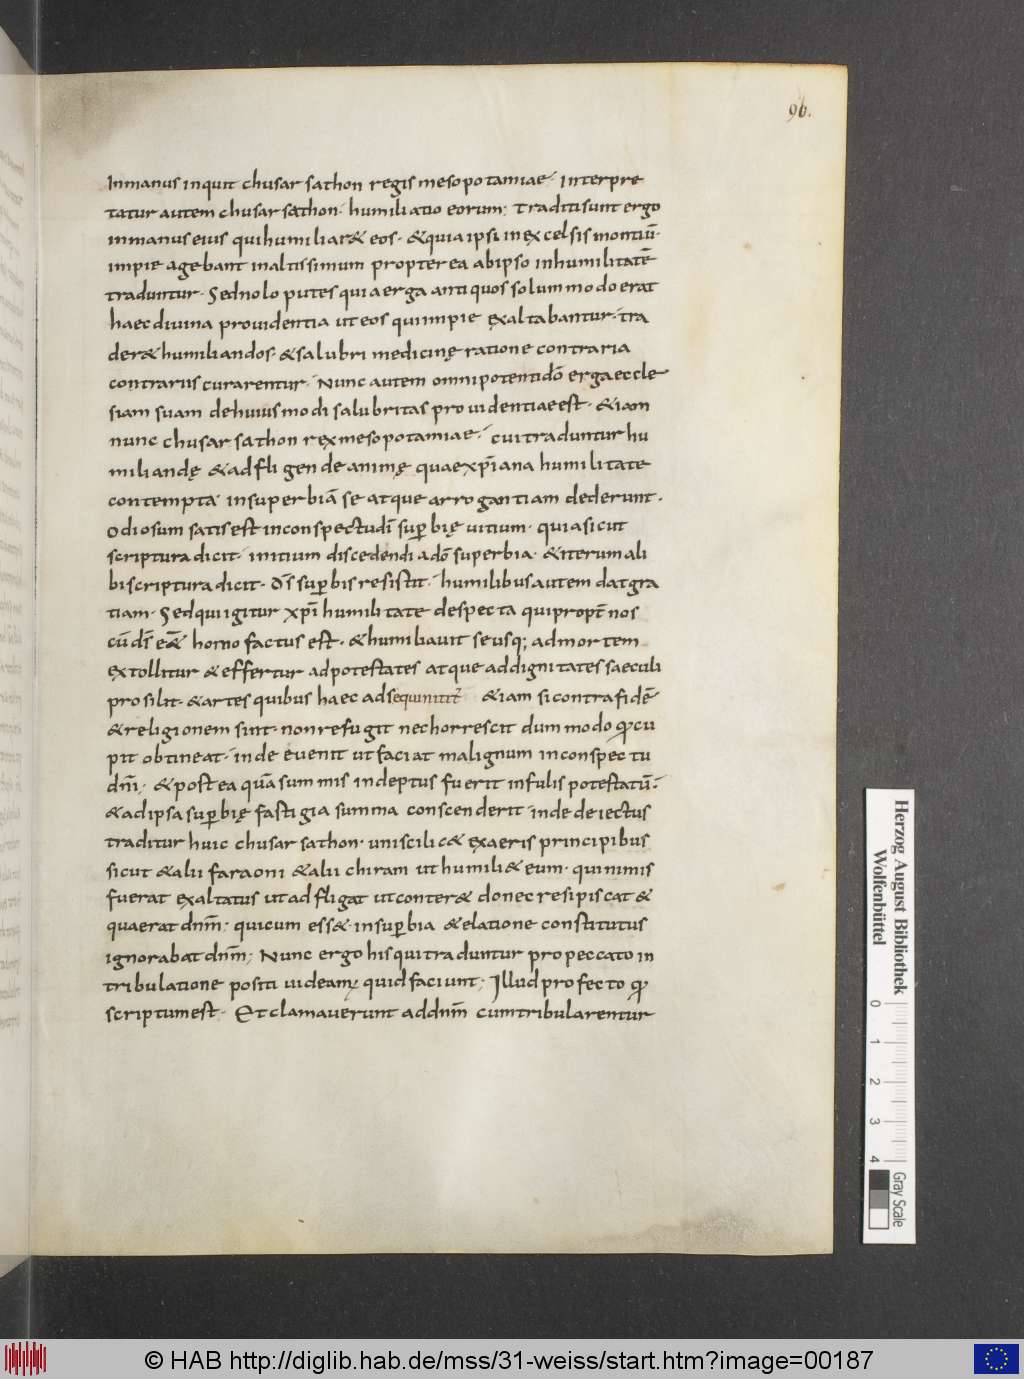 96.
Inmanus inquit chusar sathon regis mesopotamiae· Interpre
tatur autem chusar sathon· humiliatio eorum; Traditi sunt ergo
inmanus eius qui humiliar& eos· &quia ipsi inexcelsis montiū·
impie agebant inaltissimum propterea abipso inhumilitatē
traduntur· Sednolo putes quia erga antiquos solummodo erat
haec divina providentia ut eos qui impie exaltabantur· tra
der& humiliandos· & salubri medicinę ratione contraria
contrariis curarentur· Nunc autem omnipotentidō ergaeccle
siam suam dehuiusmodi salubritas providentiae est· &iam
nunc chusar sathon rex mesopotamiae· cui traduntur hu
miliandę &adfligendę animę quae xp̄iana humilitate
contempta in superbiā se atque arrogantiam dederunt·
Odiosum satis est inconspectudī sup̱bię vitium· quia sicut
scriptura dicit· initium discedendi adō superbia· &iterum ali
bi scriptura dicit· D̄s sup̱bis resistit· humilibus autem dat gra
tiam· Sedqui igitur xp̄i humilitate despecta qui propt̄ nos
cū dī eē& homo factus est· &humiliavit se usq; admortem
extollitur &effertur adpotestates atque addignitates saeculi
prosilit· &artes quibus haec adsequunt̃ &iam si contra fidē
&religionem sint· non refugit nec horrescit dummodo qđ cu
pit obtineat· inde evenit ut faciat malignum inconspectu
dn̄i; &postea quā summis indeptus fuerit infulis potestatū·
&adipsa sup̱bię fastigia summa conscenderit inde deiectus
traditur huic chusar sathon· uni scilic& ex aeris principibus
sicut &alii faraoni &alii chiram ut humili& eum· qui nimis
fuerat exaltatus ut adfligat ut conter& donec resipiscat &
quaerat dnm̄· qui cum ess& insup̱bia &elatione constitutus
ignorabat dnm̄; Nunc ergo his qui traduntur pro peccato in
tribulatione positi videam; quid faciunt; Illud profecto qđ
scriptum est· Et clamaverunt addnm̄ cum tribularentur
Herzog August Bibliothek
Wolfenbüttel
0 1 2 3 4
Gray Scale
© HAB http://diglib.hab.de/mss/31-weiss/start.htm?image=00187